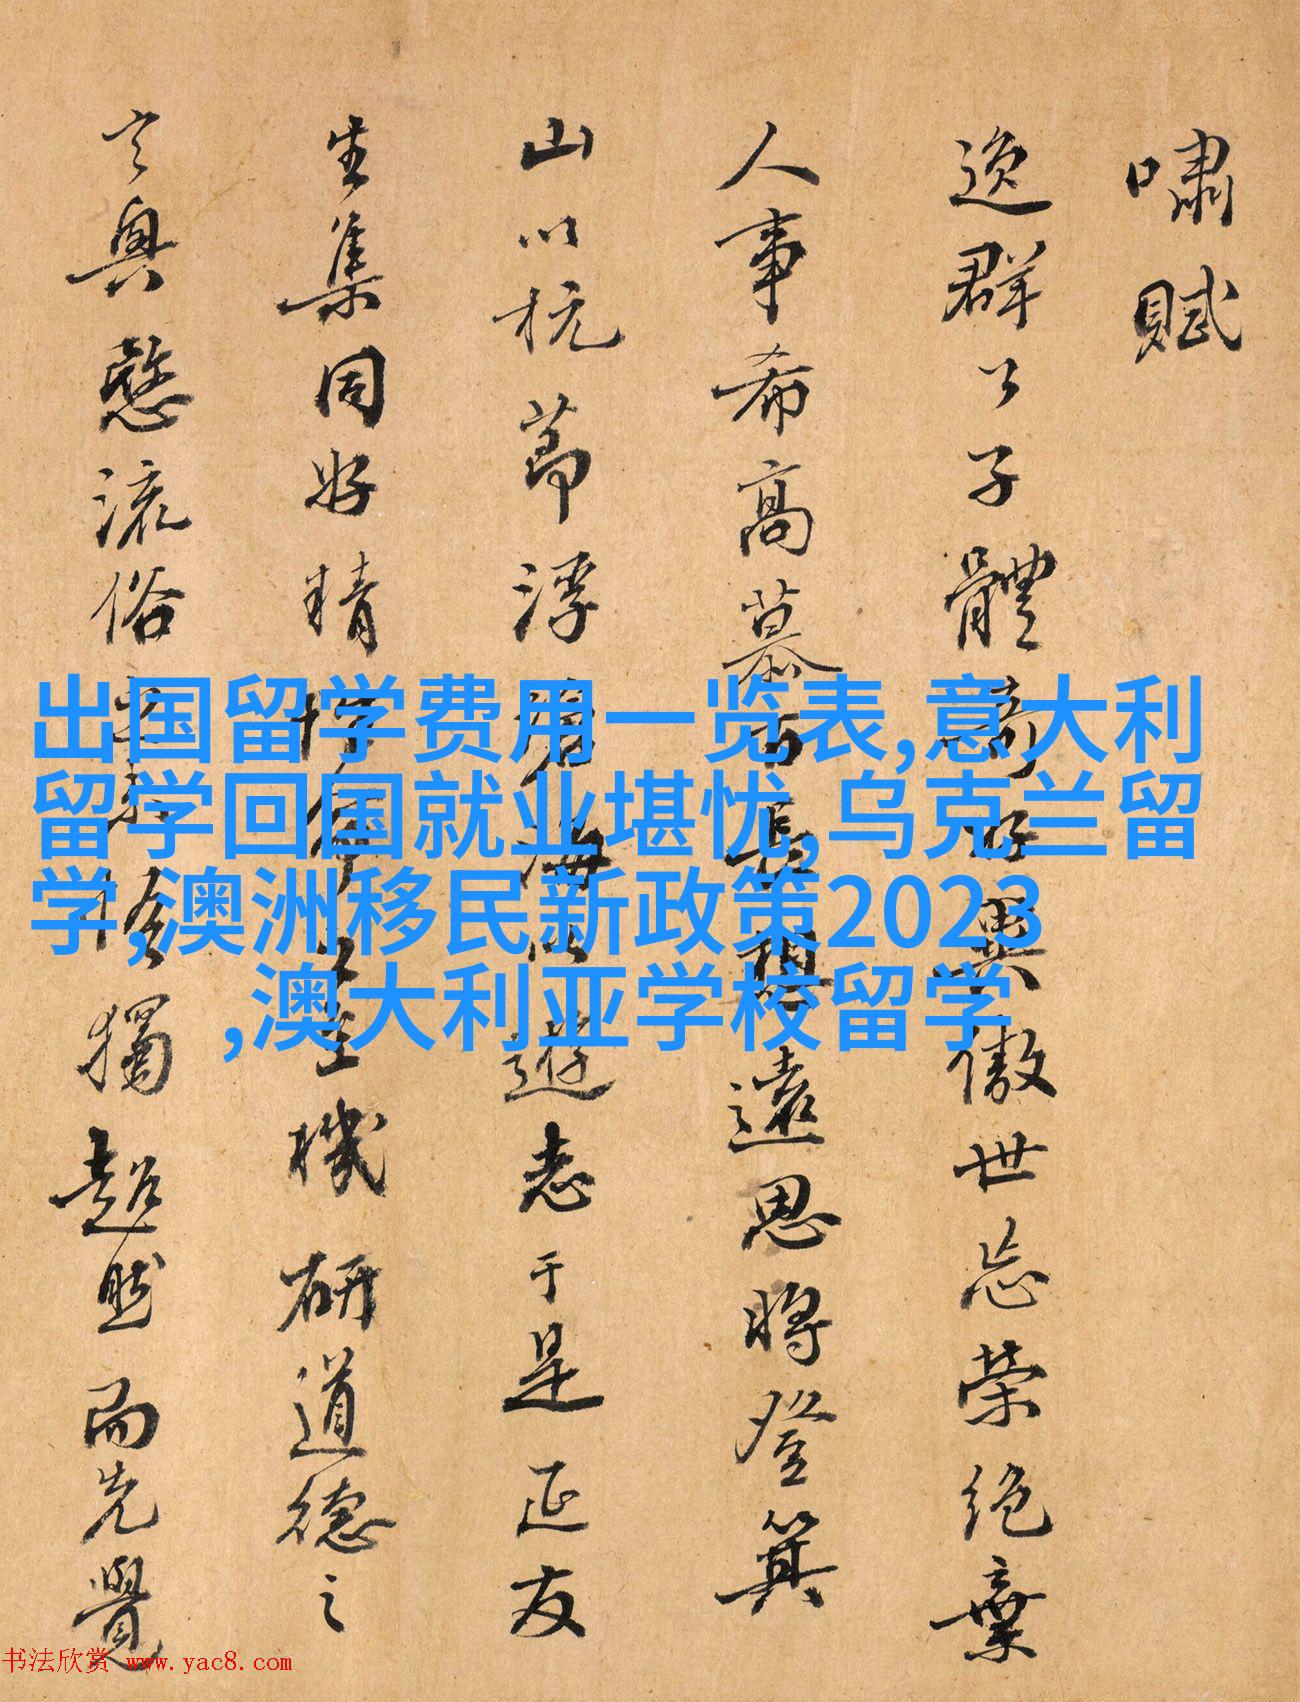 嘯賦
逸群公子體奇好異傲世忘榮絕棄
人事希高慕古長想遠思將登箕
山以抗節浮滄海以遊志于是延友
生集同好精性命之至機研道德之
玄奥愍流俗之未悟獨超然而先覺
出国留学费用一览表,意大利
留学回国就业堪忧,乌克兰留
学,澳洲移民新政策2023
,澳大利亚学校留学
书法欣赏 www.yac8.com